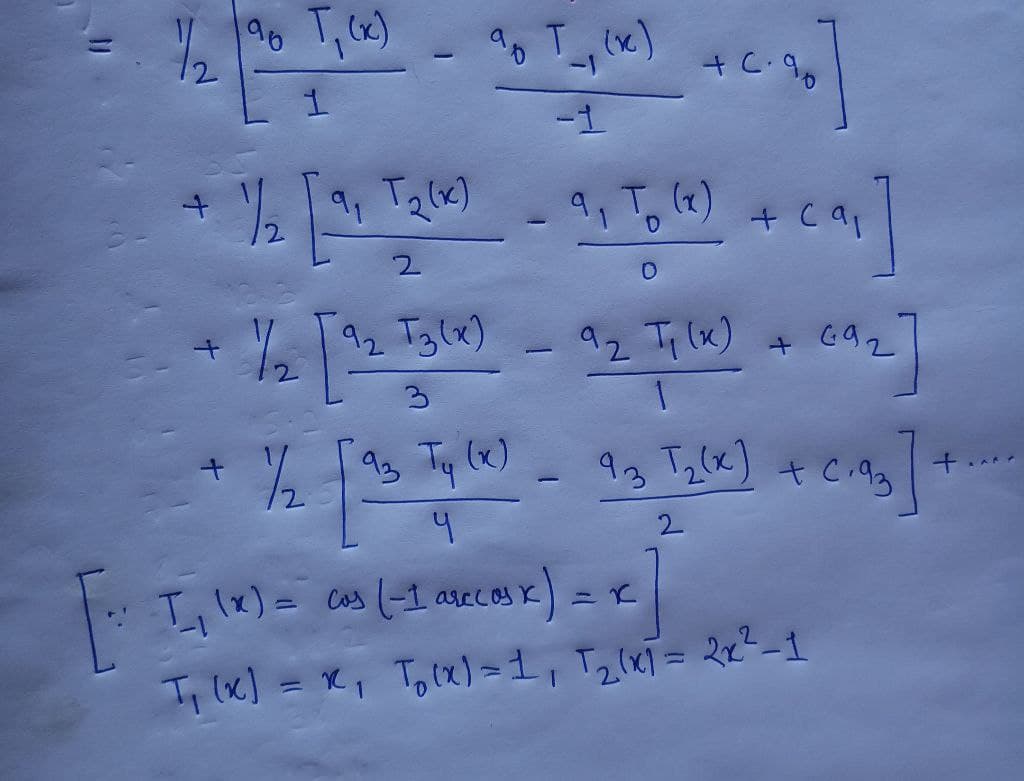 = 1/2 [ a₀ T₁(x) / 1 - a₀ T₋₁(x) / -1 + C·a₀ ]
+ 1/2 [ a₁ T₂(x) / 2 - a₁ T₀(x) / 0 + C a₁ ]
+ 1/2 [ a₂ T₃(x) / 3 - a₂ T₁(x) / 1 + C a₂ ]
+ 1/2 [ a₃ T₄(x) / 4 - a₃ T₂(x) / 2 + C·a₃ ] + ....
[ ∵ T₋₁(x) = cos (-1 arccos x) = x ]
T₁(x) = x, T₀(x) = 1, T₂(x) = 2x² - 1